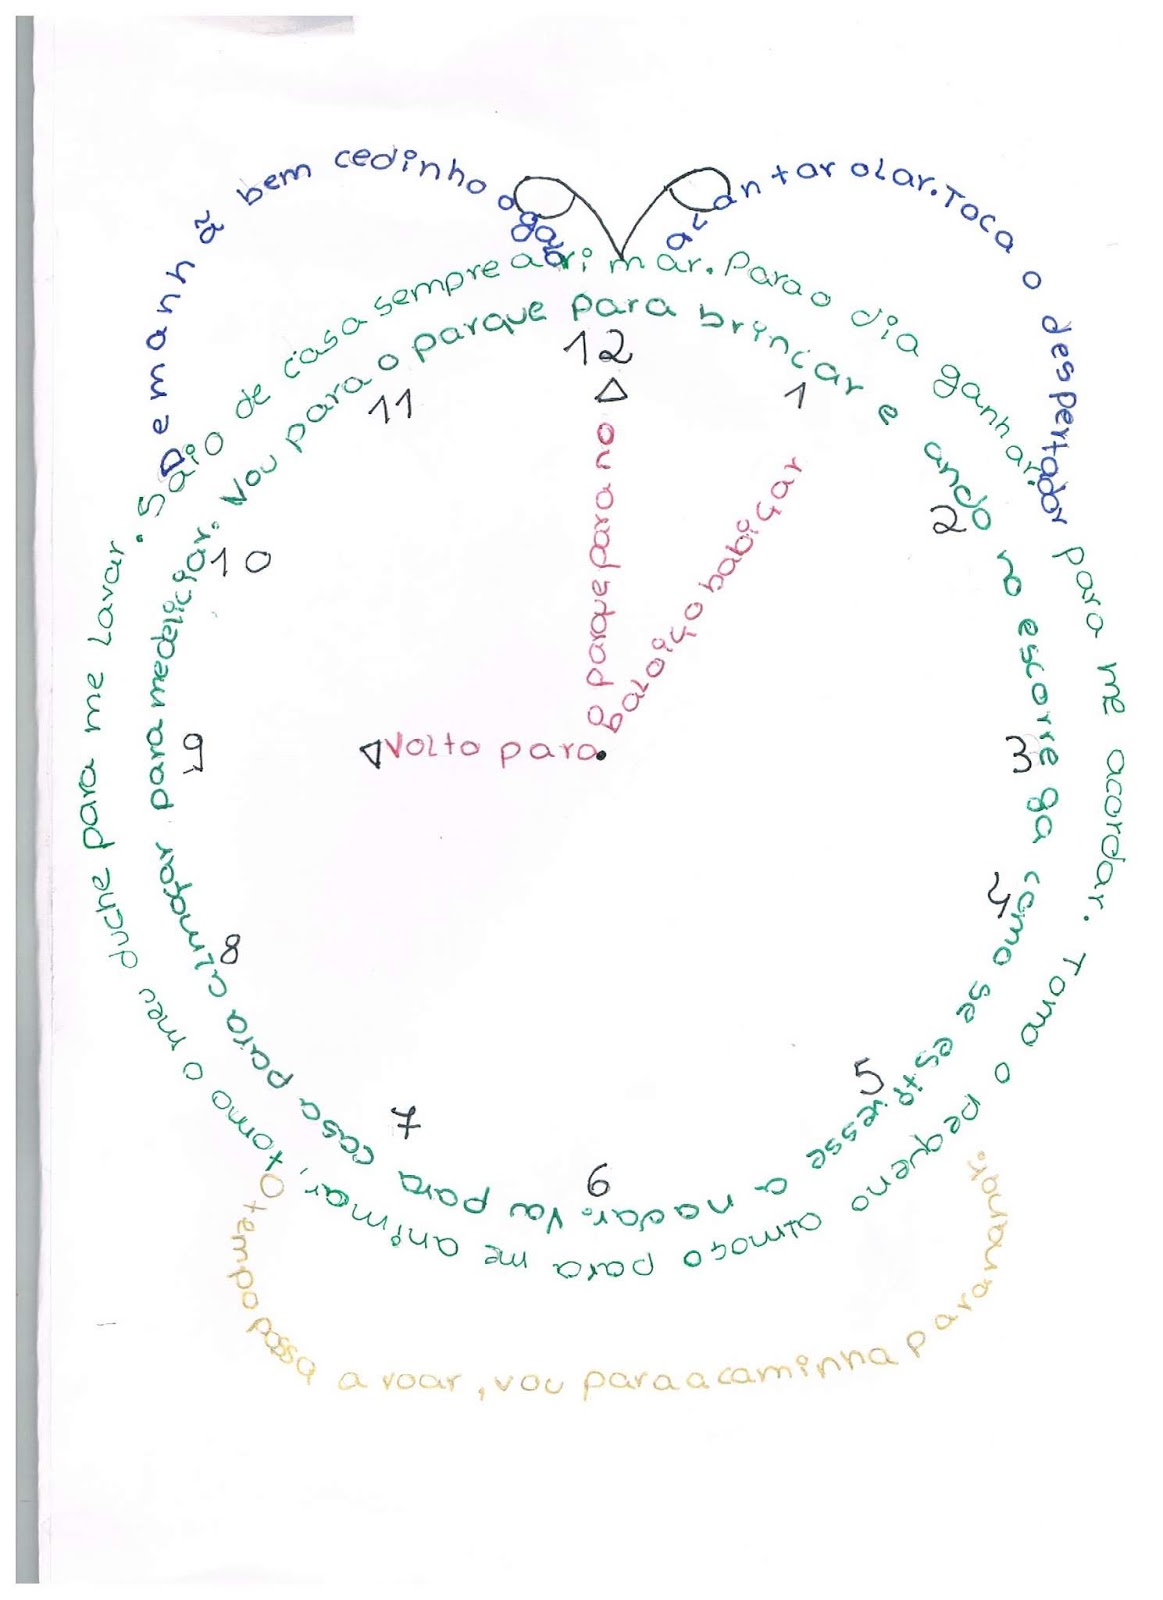 De manhã bem cedinho o galo
a cantar olar. Toca o despertador
para me acordar. Tomo o pequeno almoço para me animar, tomo o meu duche para me lavar. Saio de casa sempre a rimar. Para o dia ganhar.
Vou para o parque para brincar e ando no escorrega como se estivesse a nadar. Vou para casa para almoçar para me deliciar.
12
1
2
3
4
5
6
7
8
9
10
11
Volto para
o parque para no
baloiço babiçar
O tempo passa a voar, vou para a caminha para nanar.